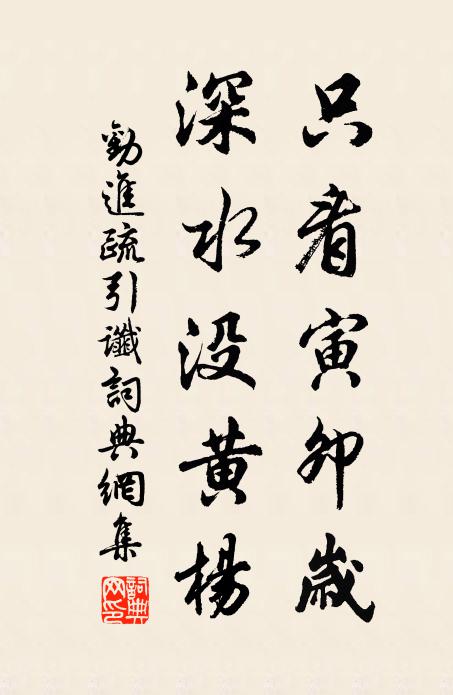 只看寅卯歲
深水没黃楊
勸進疏引讖詞典網集
詞典网印